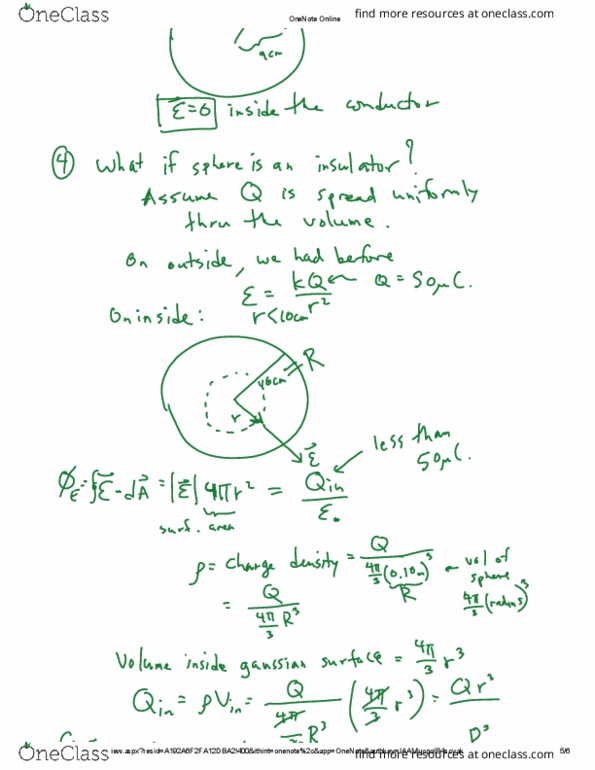 OneClass
OneNote Online
find more resources at oneclass.com
9cm
E⃗=0 inside the conductor
④ What if sphere is an insulator?
Assume Q is spread uniformly
thru the volume.
On outside, we had before
E = kQ/r² ← Q = 50μC.
On inside: r<10cm
R
r
E⃗
less than
50μC.
Φ_E = ∮E⃗·dA⃗ = |E⃗| 4πr² = Q_in/ε₀
surf. area
ρ = charge density = Q / (4π/3 (0.10m)³) ← vol of
R
sphere
4π/3 (radius)³
= Q / (4π/3 R³)
Volume inside gaussian surface = 4π/3 r³
Q_in = ρV_in = Q / (4π/3 R³) (4π/3 r³) = Qr³
OneClass
find more resources at oneclass.com
5/6